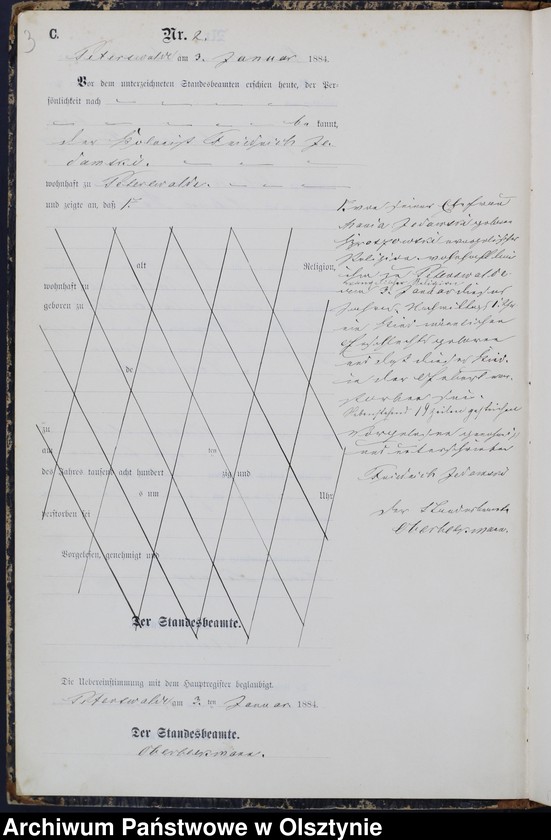 3
C.
Nr. 2.
Peterswalde am 3. Januar 1884.
Vor dem unterzeichneten Standesbeamten erschien heute, der Per-
sönlichkeit nach
bekannt,
der Friedrich
wohnhaft zu Peterswalde
und zeigte an, daß
alt Religion,
wohnhaft zu
geboren zu
de
zu
am ten
des Jahres tausend acht hundert zig und
s um Uhr
verstorben sei
Vorgelesen, genehmigt und
Der Standesbeamte.
von seiner Ehefrau
Maria geboren
evangelischer
Religion, wohnhaft bei
ihm zu Peterswalde
evangelischer Religion
am 3. Januar dieses
Jahres Nachmittags Uhr
ein Kind männlichen
Geschlechts geboren
und daß dieses Kind
in der Geburt ver-
storben sei.
Vorstehend 19 Zeilen gestrichen
Vorgelesen genehmigt
und unterschrieben
Friedrich
Der Standesbeamte
Die Uebereinstimmung mit dem Hauptregister beglaubigt.
Peterswalde am 3. ten Januar 1884.
Der Standesbeamte.
Archiwum Państwowe w Olsztynie